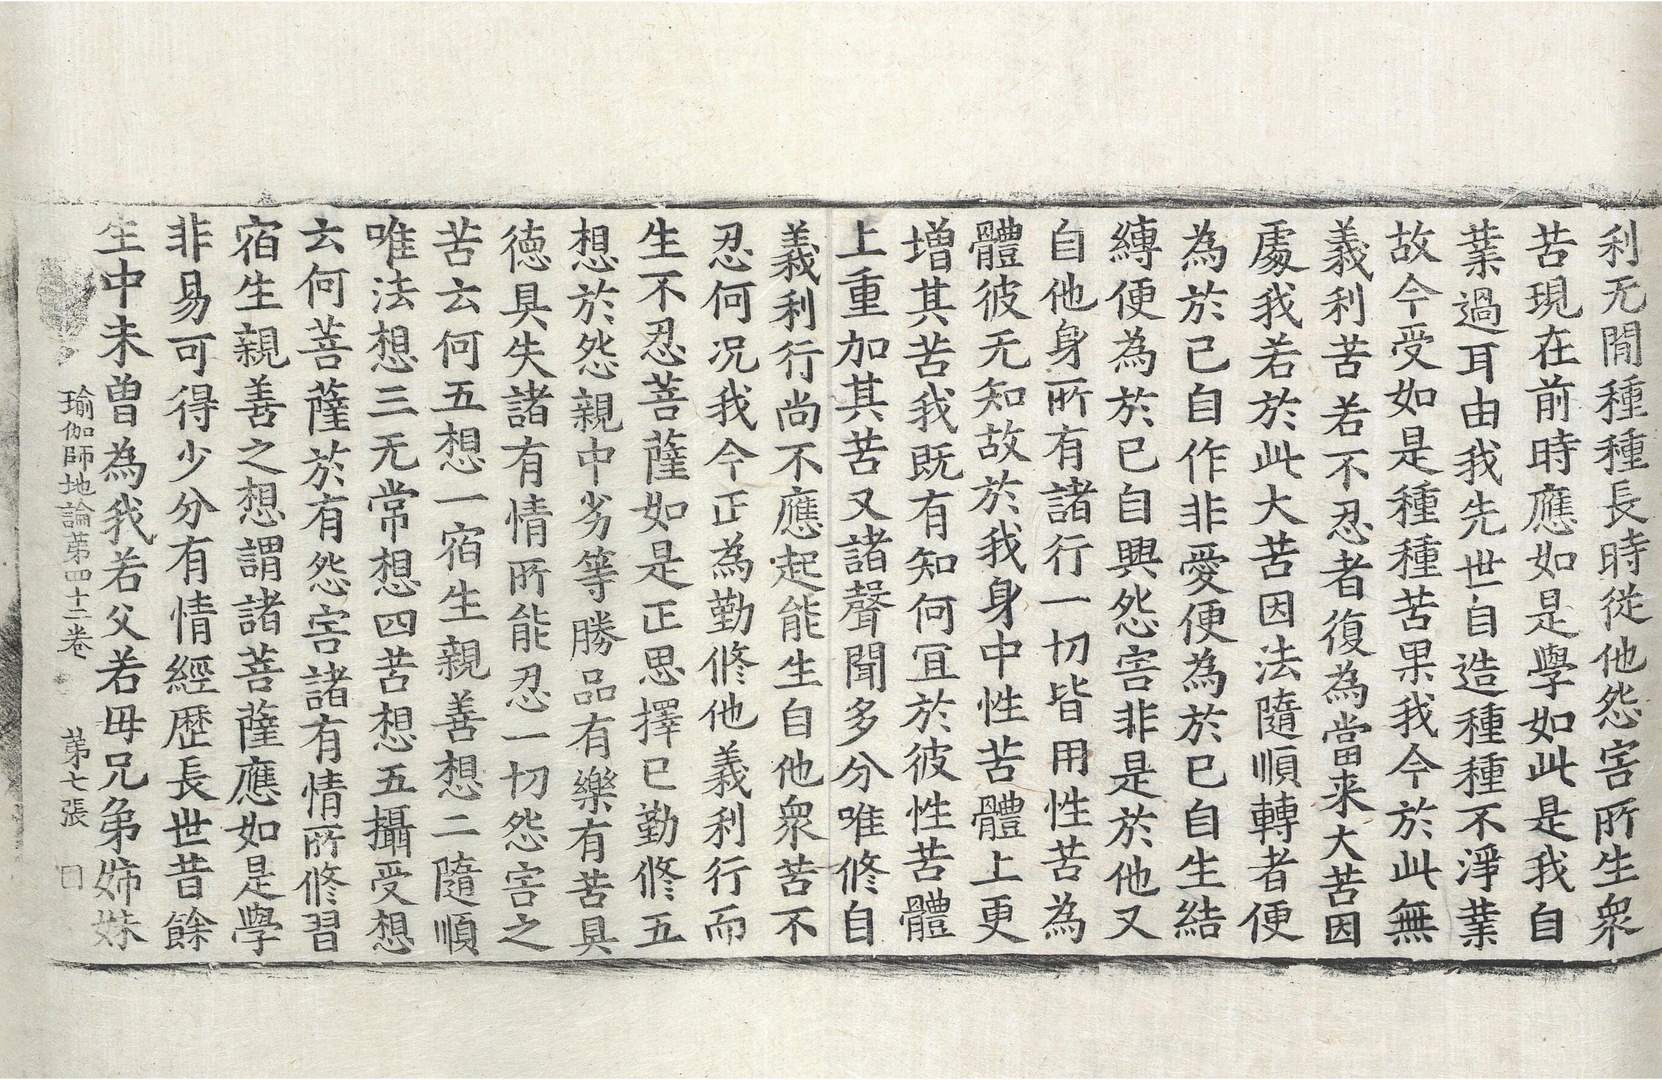 利无閒種種長時從他怨害所生衆
苦現在前時應如是學如此是我自
業過耳由我先世自造種種不淨業
故今受如是種種苦果我今於此無
義利苦若不忍者復為當来大苦因
處我若於此大苦因法隨順轉者便
為於已自作非愛便為於已自生結
縛便為於已自興怨害非是於他又
自他身所有諸行一切皆用性苦為
體彼无知故於我身中性苦體上更
增其苦我既有知何宜於彼性苦體
上重加其苦又諸聲聞多分唯修自
義利行尚不應起能生自他衆苦不
忍何况我今正為勤修他義利行而
生不忍菩薩如是正思擇已勤修五
想於怨親中劣等勝品有樂有苦具
德具失諸有情所能忍一切怨害之
苦云何五想一宿生親善想二隨順
唯法想三无常想四苦想五攝受想
云何菩薩於有怨害諸有情所修習
宿生親善之想謂諸菩薩應如是學
非易可得少分有情經歷長世昔餘
生中未曾為我若父若母兄弟姊妹
瑜伽師地論第四十二卷 第七張 口